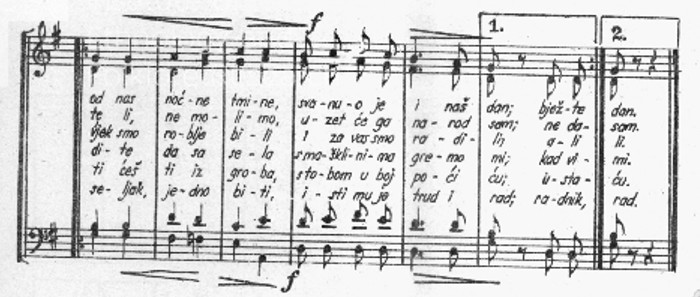 f
1. 2.
od nas noć-ne tmi-ne, sva-nu-o je i naš dan; bjež-te dan.
te li, ne mo-li-mo, u-zet će ga na-rod sam; ne da-sam.
vjek smo ro-blje bi-li I za vas smo ra-di-li; a-li li.
di-te da sa se-la smo-žkli-ni-ma gre-mo mi; kad vi-mi.
ti ćeš ti iz gro-ba, sto-bom u boj po-ći ću; u-sta-ću.
se-ljak, je-dno bi-ti, i-sti mu je trud i rad; ra-dnik, rad.
f